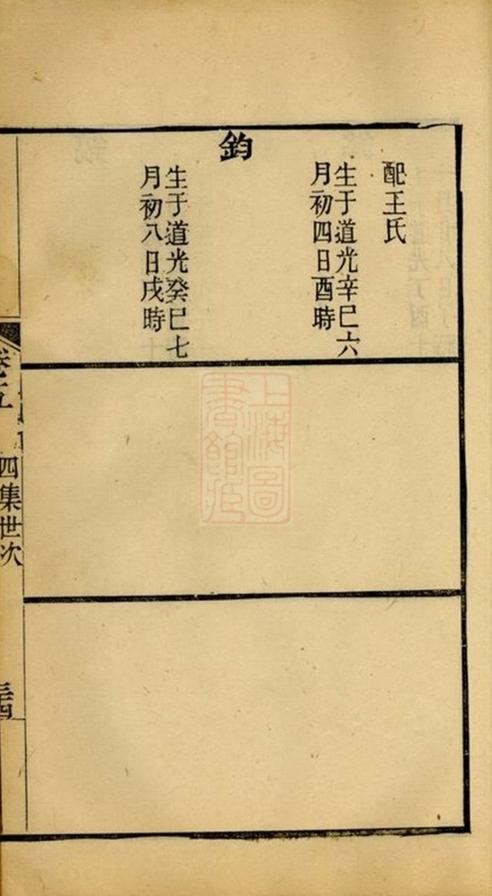 配王氏
生于道光辛巳六
月初四日酉時
鈞
生于道光癸巳七
月初八日戌時
上海圖
書館藏
卷五
四集世次